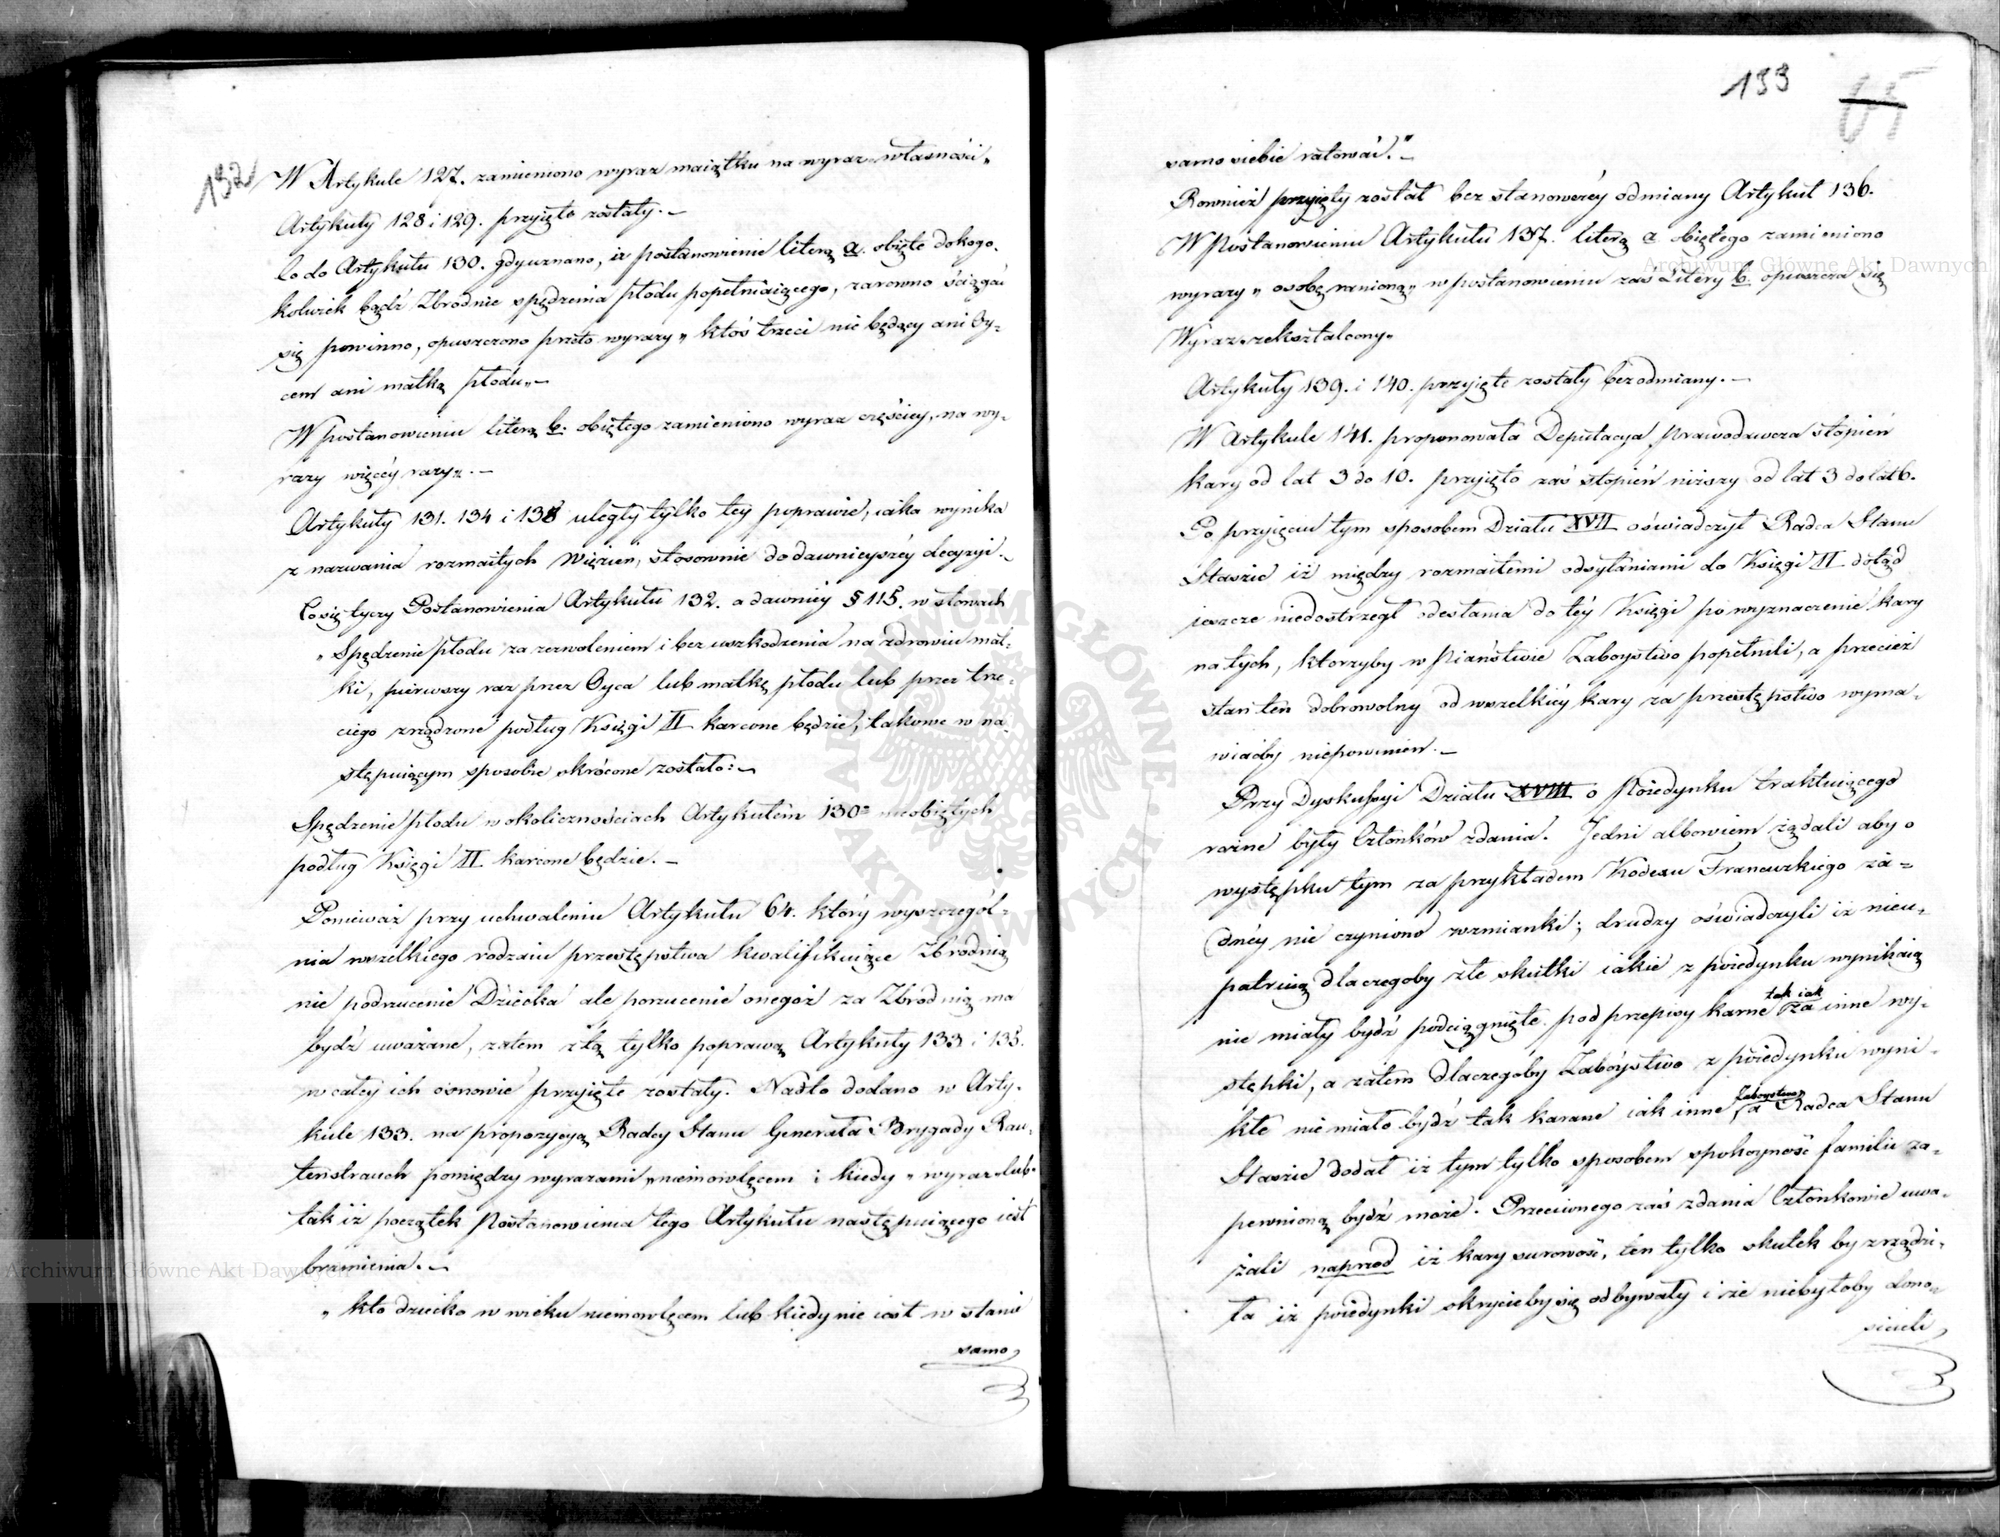 132
W Artykule 127. zamieniono wyraz maiątku na wyraz „własności„
Artykuły 128 i 129. przyięte zostały. —
Co do Artykułu 130. gdy uznano, iż postanowienie literą a. obięte do kogo-
kolwiek bądź Zbrodnie spędzenia płodu popełniaiącego, zarowno ściągać
się powinno, opuszczono przeto wyrazy „ ktoś trzeci nie będący ani Oy-
cem ani matką płodu„ —
W postanowieniu literą b. obiętego zamieniono wyraz częściey, na wy-
razy więcéy razy„. —
Artykuły 131. 134 i 138 uległy tylko tey poprawie, iaka wynika
z nazwania rozmaitych Więzień, stosownie do dawnieyszéy decyzyi. —
Co się tyczy Postanowienia Artykułu 132. a dawniey § 115. w słowach
„ Spędzenie płodu za zezwoleniem i bez uszkodzenia na zdrowiu mat-
ki, pierwszy raz przez Oyca lub matkę płodu lub przez trze-
ciego zrządzone podług Księgi II karcone będzie, takowe w na-
stępuiącym sposobie okrócone zostało: —
Spędzenie płodu w okolicznościach Artykułem 130= nieobiętych
podług Księgi II. karcone będzie. —
Ponieważ przy uchwaleniu Artykułu 64. który wyszczegól-
nia wszelkiego rodzaiu przestępstwa kwalifikuiące Zbrodnią
nie podrzucenie Dziecka ale porzucenie onegoż za Zbrodnią ma
bydź uważane, zatem z tą tylko poprawą Artykuły 133 i 135.
w całey ich osnowie przyięte zostały. Nadto dodano w Arty-
kule 133. na propozycyą Radcy Stanu Generała Brygady Rau-
tenstrauch pomiędzy wyrazami „niemowlęcem i kiedy „ wyraz „lub„
tak iż początek Postanowienia tego Artykułu następuiącego iest
brzmienia. —
„ kto dziecko w wieku niemowlęcem lub kiedy nie iest w stanie
samo
133
65
samo siebie ratować." —
Rownież przyięty został bez stanowczéy odmiany Artykuł 136.
W Postanowieniu Artykułu 137. literą a obiętego zamieniono
wyrazy „ osobę ranioną„ w postanowieniu zaś Litery b. opuszcza się
Wyraz „zekształcony„
Artykuły 139. i 140. przyięte zostały bez odmiany. —
W Artykule 141. proponowała Deputacya Prawodawcza stopień
kary od lat 3 do 10. przyięto zaś stopień niższy od lat 3 do lat 6.
Po przyięciu tym sposobem Działu XVII oświadczył Radca Stanu
Staszic iż między rozmaitemi odsyłaniami do Księgi II dotąd
ieszcze niedostrzegł odesłania do téy Księgi po wyznaczenie kary
na tych, ktorzyby w Piaństwie Zaboystwo popełnili, a przecież
stan ten dobrowolny od wszelkiéy kary za przestępstwo wyma-
wiaćby niepowinien. —
Przy Dyskussyi Działu XVIII o Poiedynku traktuiącego
rożne były Członków zdania. Jedni albowiem żądali aby o
występku tym za przykładem Kodexu Francuzkiego ża=
dnéy nie czyniono wzmianki; drudzy oświadczyli iż nieu-
patruią dlaczegoby złe skutki iakie z poiedynku wynikaią
nie miały bydź podciągnięte pod przepisy karne tak iak za inne wy-
stępki, a zatem dlaczegoby Zabóystwo z poiedynku wyni-
kłe nie miało bydź tak karane iak inne Zaboystwo, a Radca Stanu
Staszic dodał iż tym tylko sposobem spokoyność familii za-
pewnioną bydź może. Przeciwnego zaś zdania Członkowie uwa-
żali naprzod iż kary surowość, ten tylko skutek by zrządzi-
ła iż poiedynki skrycieby się odbywały i że niebyłoby dono-
sicieli
Archiwum Główne Akt Dawnych
Archiwum Główne Akt Dawnych
ARCHIWUM GŁÓWNE AKT DAWNYCH